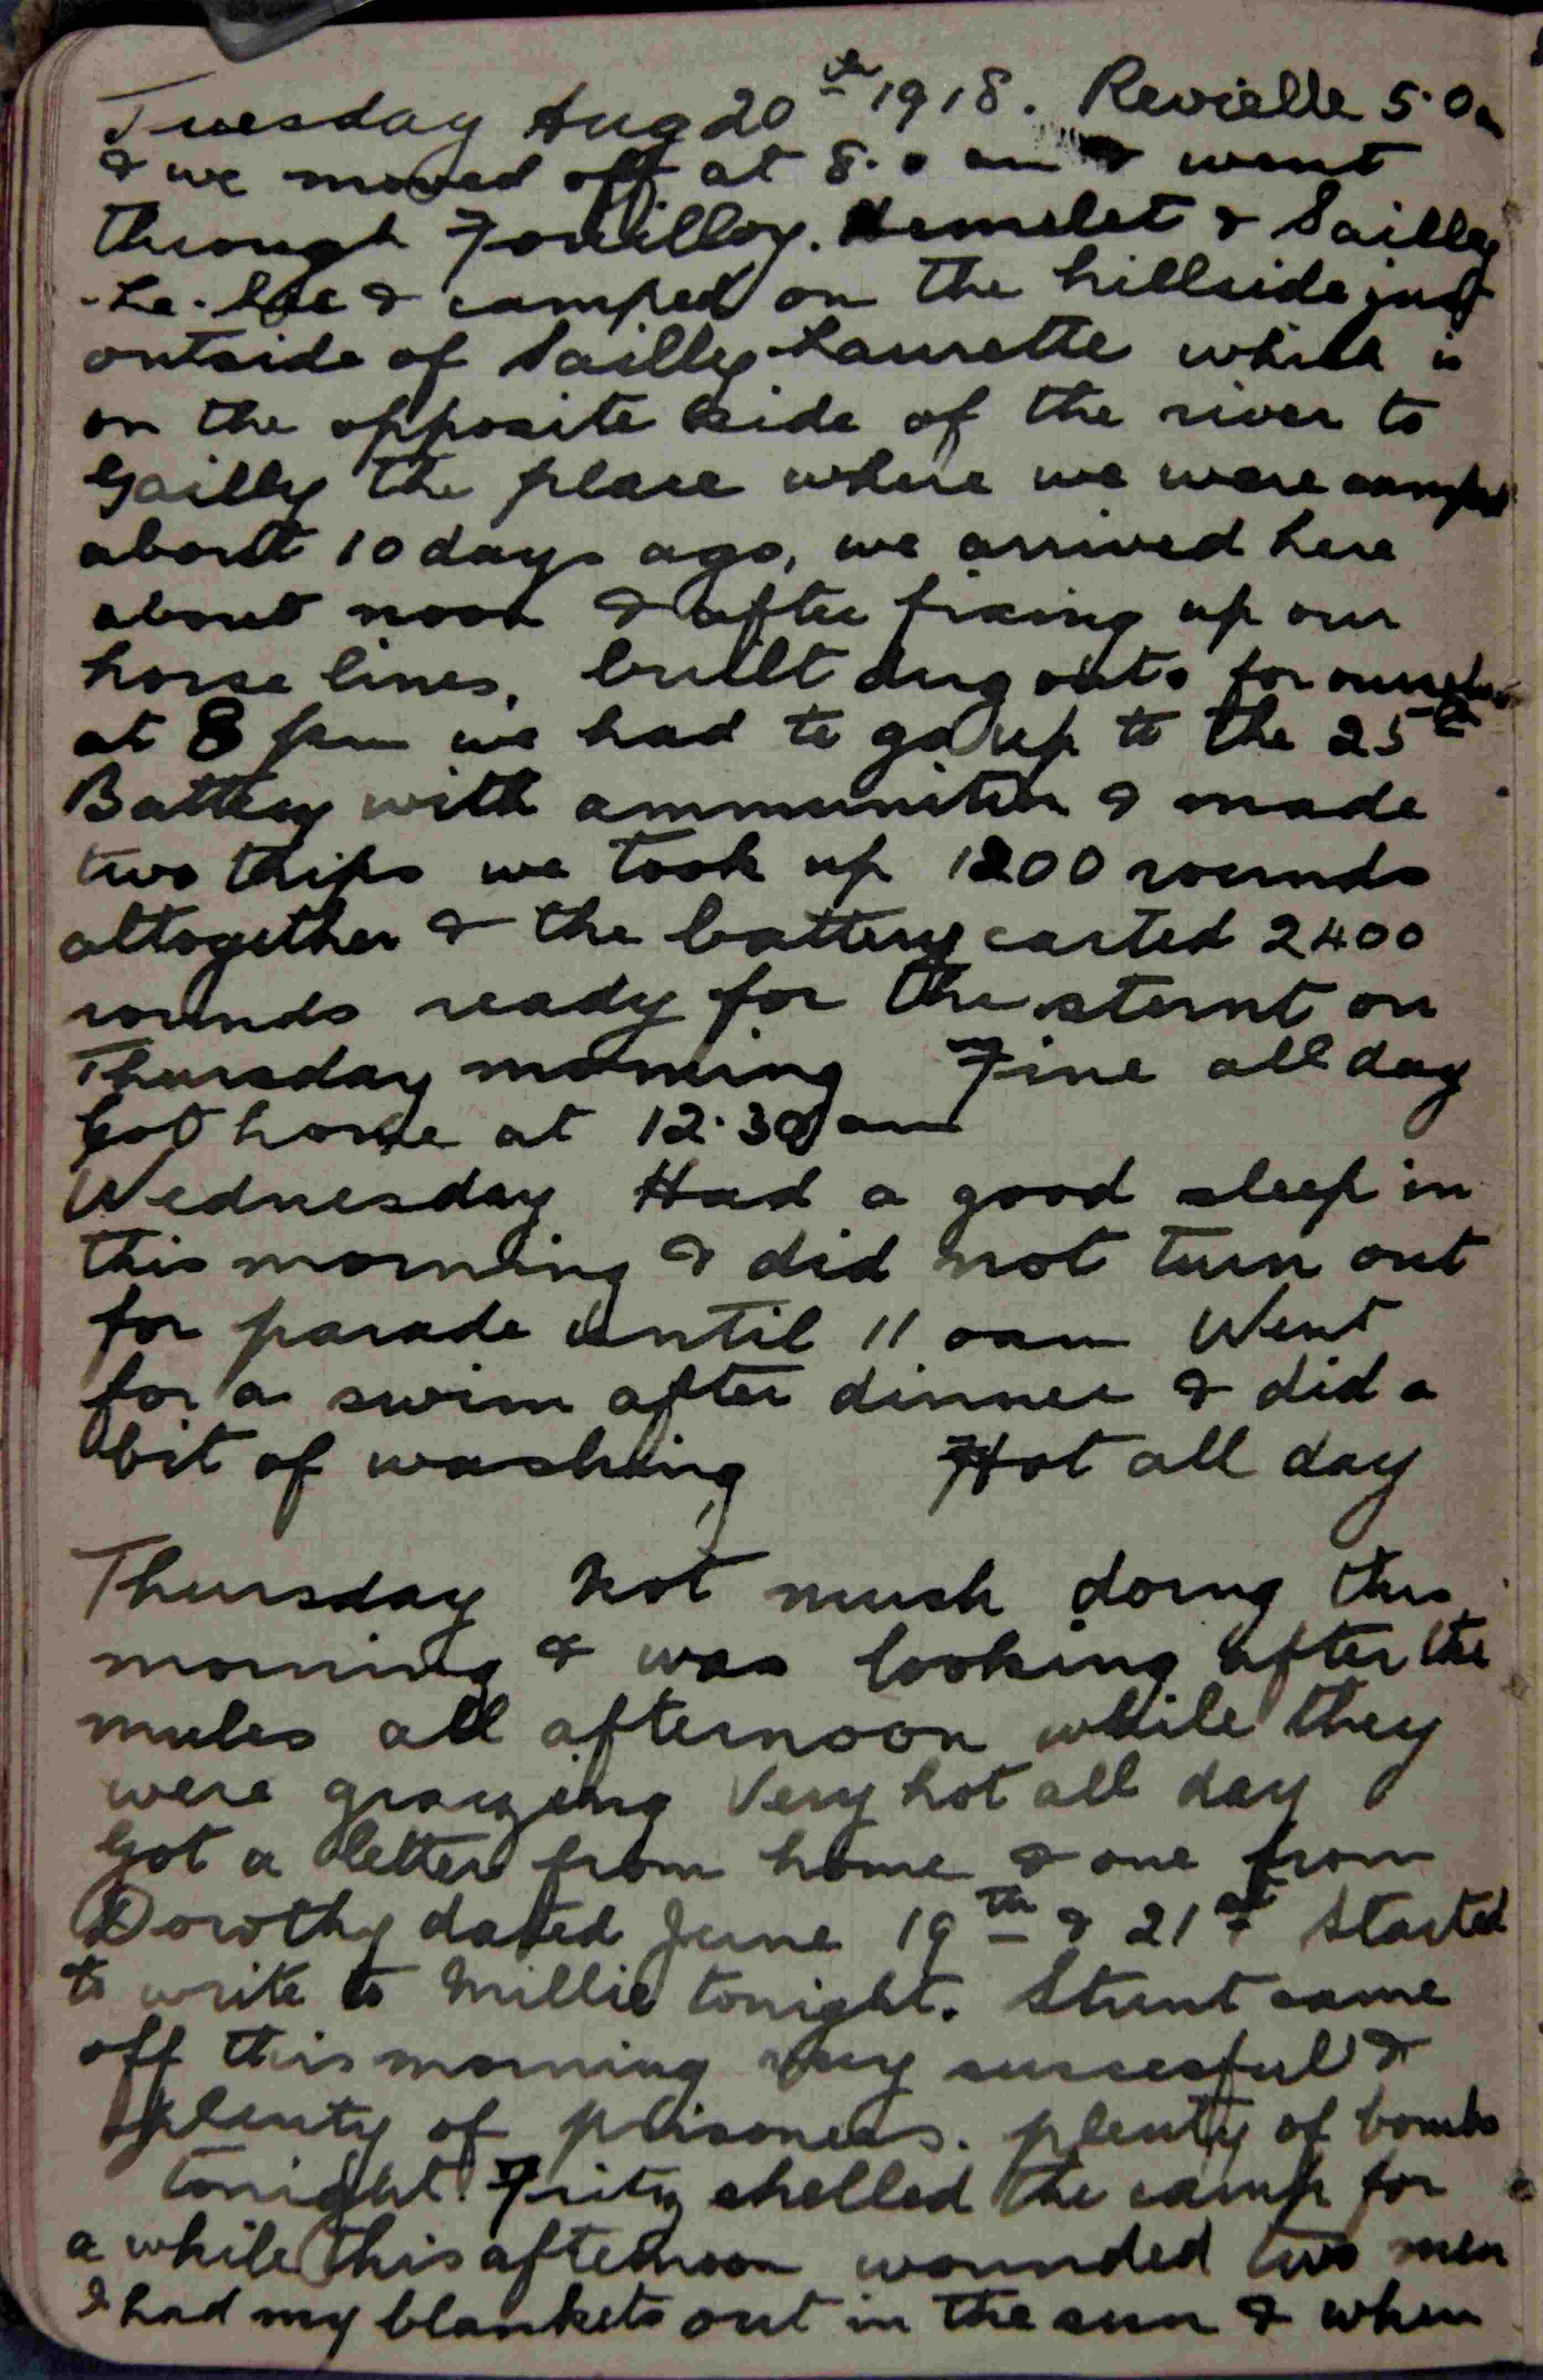 Tuesday Aug 20th 1918. Revielle 5.0a
& we moved off at 8.0 am & went
through Fouilloy. Hemelet & Sailley
-Le-Sec & camped on the hillside just
outside of Sailley Laurette which is
on the opposite side of the river to
Gailly the place where we were camped
about 10 days ago, we arrived here
about noon & after fixing up our
horse lines, built dug outs for ourselves
at 8 pm we had to go up to the 25th
Battery with ammunition & made
two trips we took up 1200 rounds
altogether & the battery carted 2400
rounds ready for the sturnt on
Thursday morning Fine all day
Got home at 12.30 am
Wednesday Had a good sleep in
this morning & did not turn out
for parade until 11 oam Went
for a swim after dinner & did a
bit of washing Hot all day
Thursday Not much doing this
morning & was looking after the
mules all afternoon while they
were grazeing Very hot all day
Got a letter from home & one from
Dorothy dated June 19th & 21st Started
to write to Millie tonight. Stunt came
off this morning very succesful &
plenty of prisoners. plenty of bombs
tonight. Fritz shelled the camp for
a while this afternoon wounded two men
I had my blankets out in the sun & when